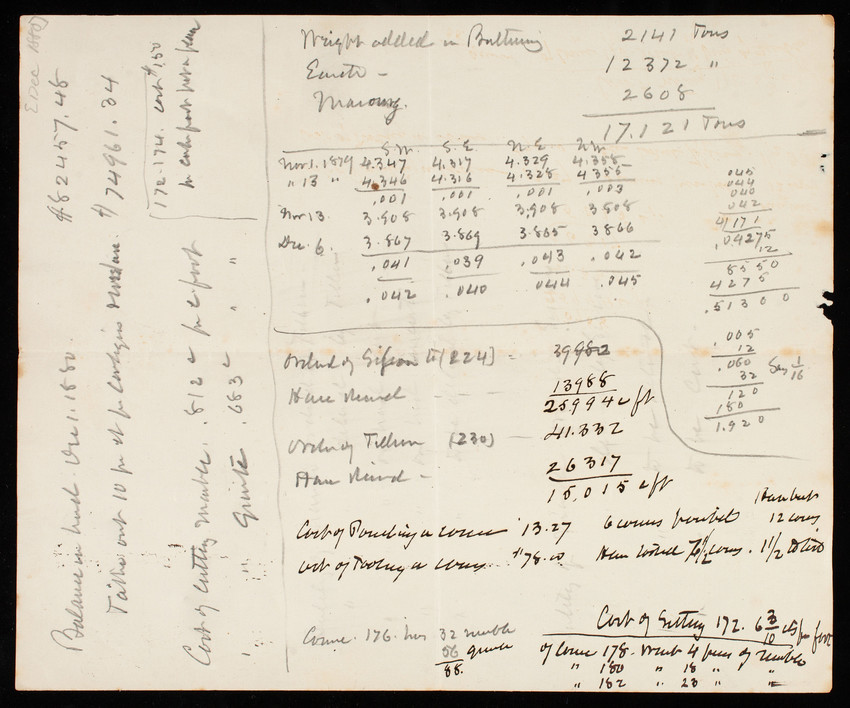 Weight added in Buttering 2141 Tons
Earth - 12 372 "
Masonry. 2608
17.121 Tons
S.W. S.E. N.E. N.W.
Nov 1. 1879 4.347 4.317 4.329 4.358
" 13 " 4.346 4.316 4.328 4355
.001 .001 .001 .003
Nov 13. 3.908 3.908 3.908 3908
Dec. 6. 3.867 3.869 3.865 3866
.041 .039 .043 .042
.042 .040 044 .045
045
044
040
042
4/171
.04275
12
8550
4275
.51300
.005
12
.060 Say 1/16
32
120
180
1.920
Ordered of Sisson [224] = 39982
Have Received - - - 13988
25994 c ft
Ordered of Tillson (230) - 41.332
Have Received - 26317
15,015 c ft
Cost of Pointing a course 13.27 6 courses pointed
Cost of Tooling a course. $78.00 Have tooled 7 1/2 courses. 1 1/2
12 courses
Course 176. has 32 marble
56 granite
88.
Cost of Setting 172. 6 3/10 cts per foot
Of course 178. Want 4 pieces of marble
" 180 " 18 " "
" 182 " 23 " "
E Dec 1880
Balance on hand Dec 1. 1880. $82457.48
Take out 10 per ct for contingencies $74961.34
172-174. cost $1.50
per cubic foot
Cost of Cutting Marble. .812 c per c foot
" " Granite .683 c " "